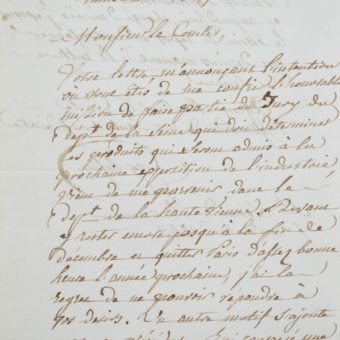 Monsieur le Comte,
Votre lettre, m'annonçant l'intention
où vous êtes de me confier l'honorable
mission de faire partie du Jury du
Dépt de la Seine qui doit déterminer
les produits qui seront admis à la
prochaine exposition de l'industrie
vient de me parvenir dans le
dept de la haute Vienne. Devant
y rester encore jusqu'à la fin de
decembre et quitter Paris d'assez bonne
heure l'année prochaine, j'ai le
regret de ne pouvoir répondre à
vos desirs. Un autre motif s'ajoute